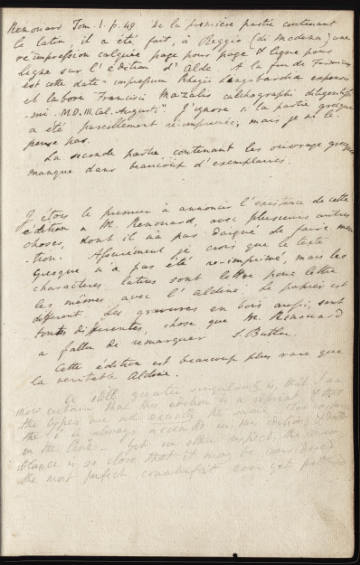 Renouard Tom. 1. p. 49. De la première partie contenant
le latin, il a été fait, à Reggio (di Modena) une
re-impression calquée page pour page & ligne pour
ligne sur l'édition d'Alde. A la fin de
est cette date impressum Rhegii Longobardiae expensis
et labore Francisci Mazalis calchographi diligentissi
-mi. M.D.III. Cal. Augusti". J'ignore si la partie grecque
a été pareillement re-imprimée, mais je ne le
pense pas.
La seconde partie contenant les ouvrages grecques
manque dans beaucoup d'exemplaires.
J'étois le premier à annoncer l'existence de cette
édition a M. Renouard, avec plusieurs autres
choses, dont il n'a pas daigné de faire men
-tion. Assurément je crois que le texte
Grecque n'a pas été re-imprimé, mais les
charactères latins sont lettre pour lettre
les mêmes avec l'aldine. Le papier est
different. Les gravures en bois aussi, sont
toutes differentes, chose que M. Renouard
a fallu de remarquer S. Butler
Cette édition est beaucoup plus rare que
la veritable Aldine.
more certain that this edition is a reprint,
the types are not exactly the same.
the is always
in the Aldine. yet in other respects the resem
blance is so close that it may be considered
the most perfect counterfeit ever yet